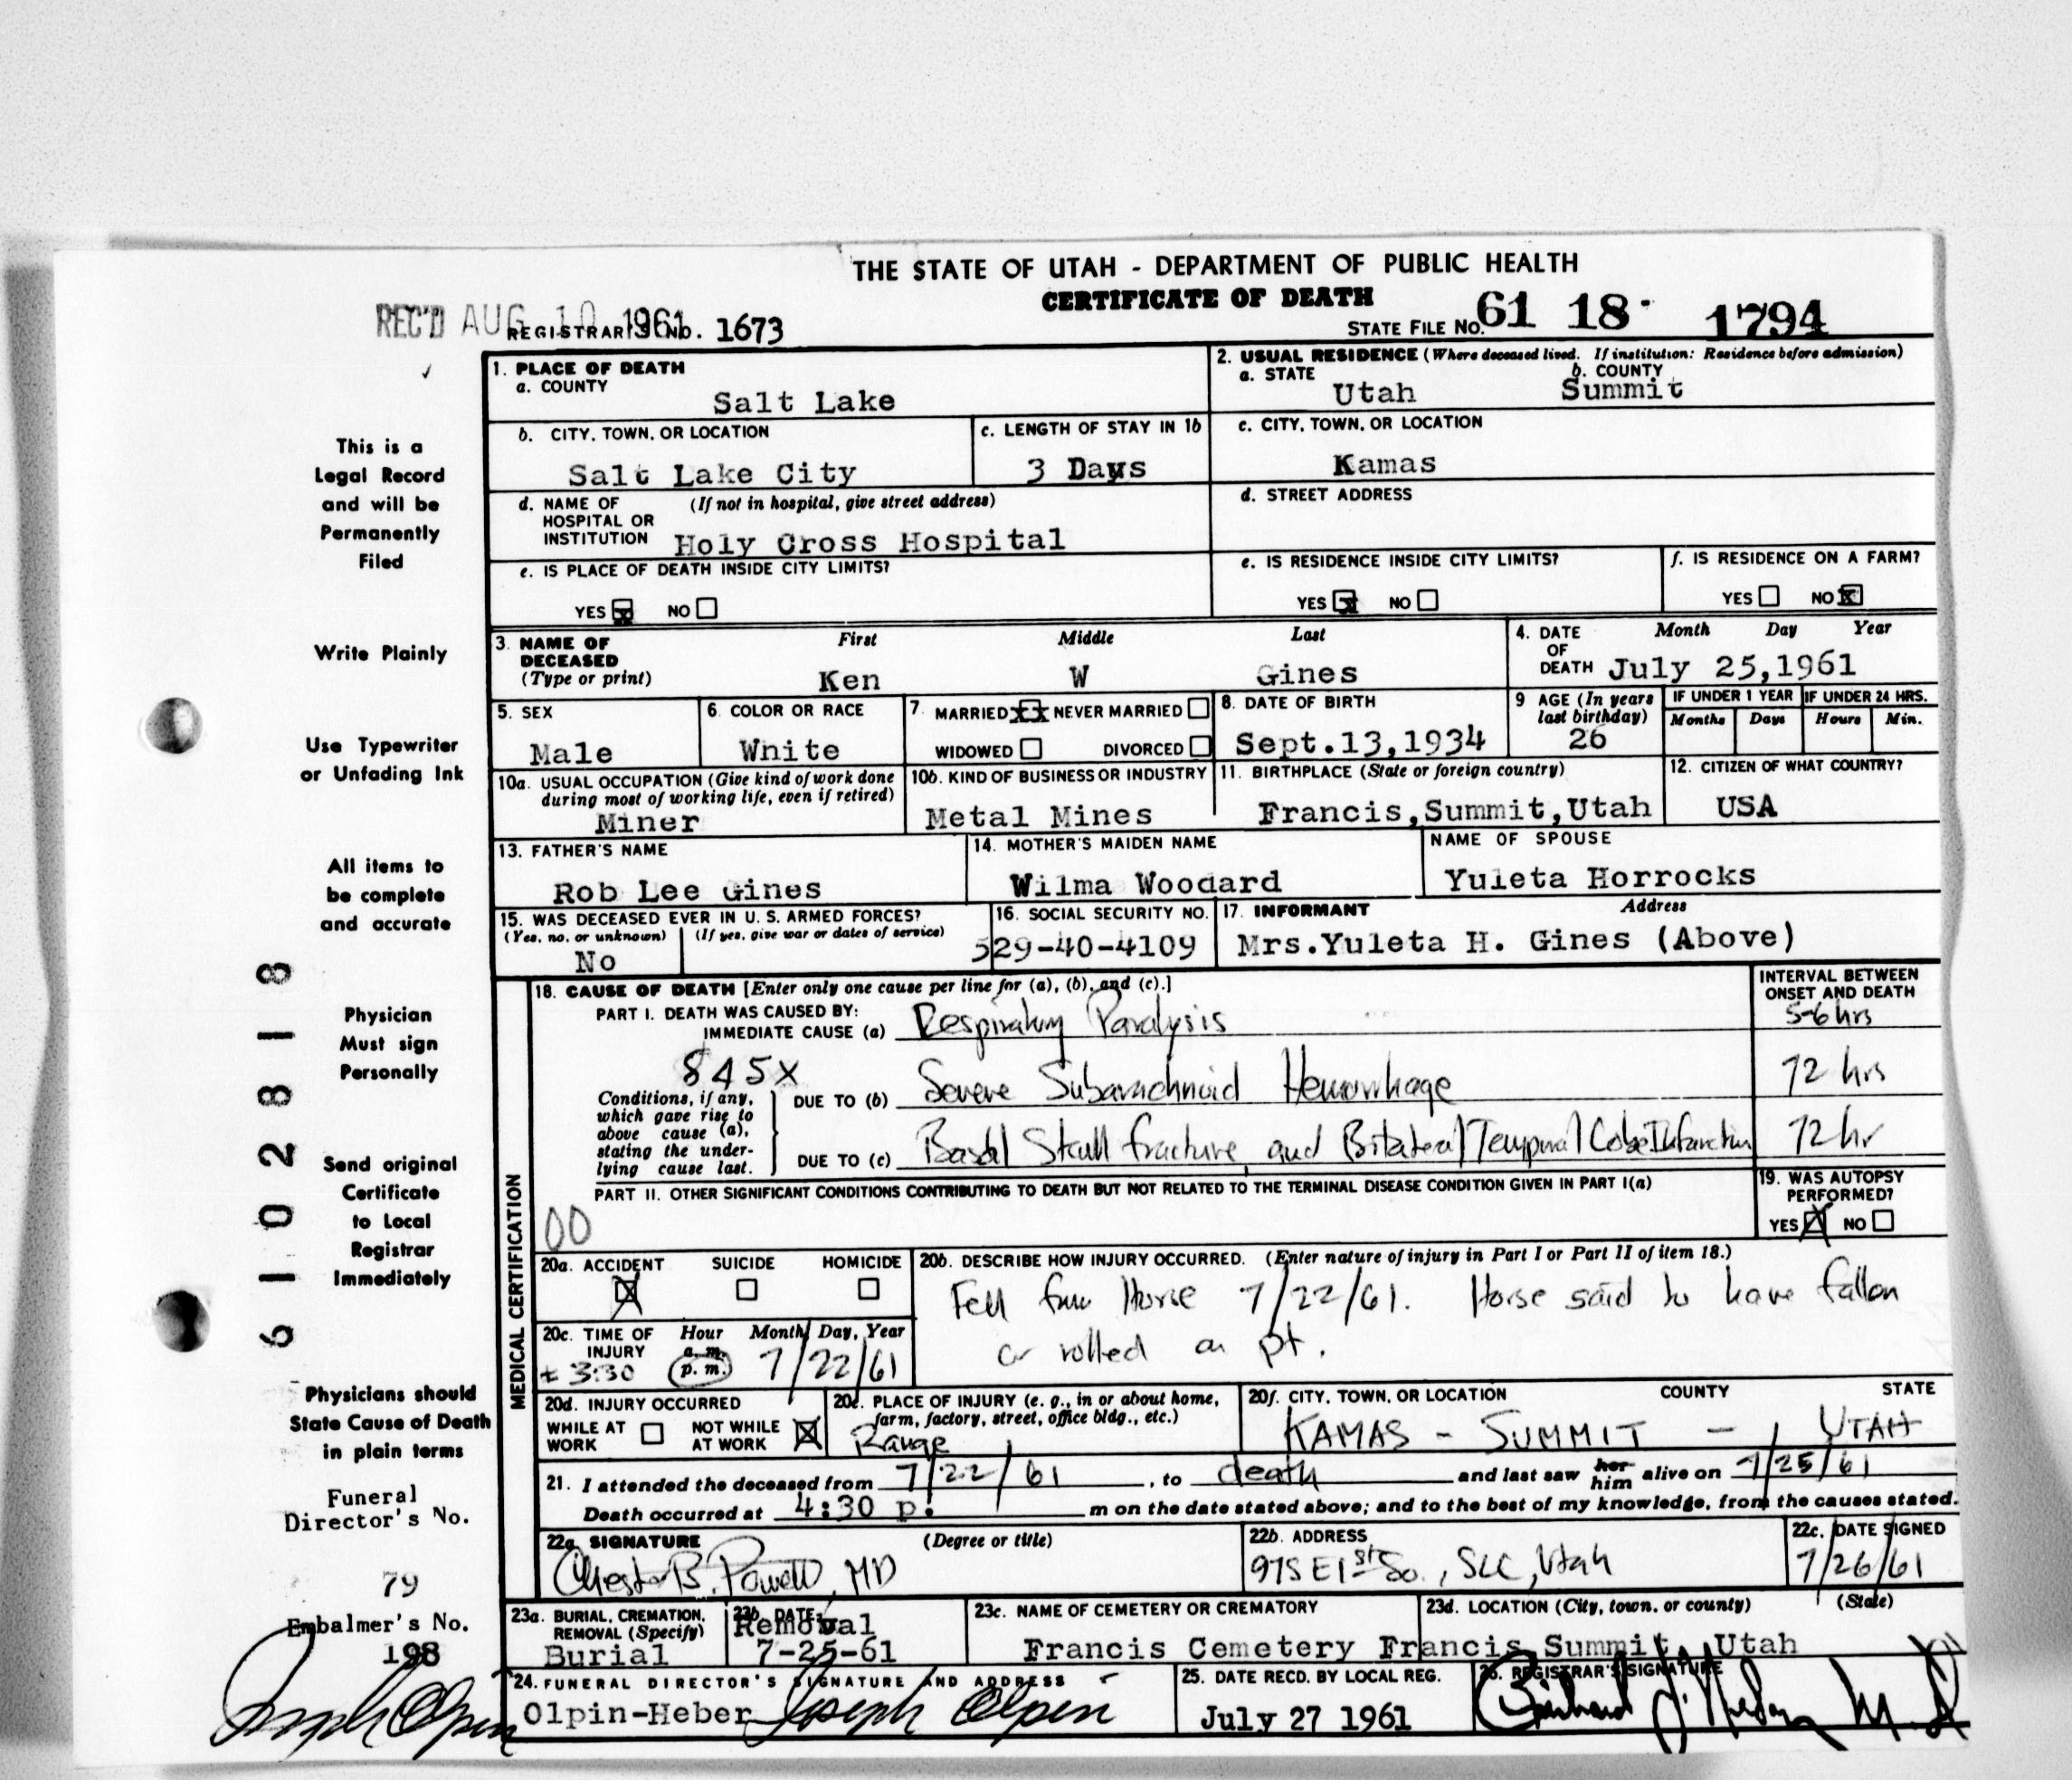 THE STATE OF UTAH - DEPARTMENT OF PUBLIC HEALTH
CERTIFICATE OF DEATH
REC'D AUG 10 1961
REGISTRAR'S No. 1673
STATE FILE No. 61 18 1794
1. PLACE OF DEATH
a. COUNTY
Salt Lake
2. USUAL RESIDENCE (Where deceased lived. If institution: Residence before admission)
a. STATE Utah b. COUNTY Summit
b. CITY, TOWN, OR LOCATION
Salt Lake City
c. LENGTH OF STAY IN 1b
3 Days
c. CITY, TOWN, OR LOCATION
Kamas
d. NAME OF (If not in hospital, give street address)
HOSPITAL OR
INSTITUTION Holy Cross Hospital
d. STREET ADDRESS
e. IS PLACE OF DEATH INSIDE CITY LIMITS?
YES X NO
e. IS RESIDENCE INSIDE CITY LIMITS?
YES X NO
f. IS RESIDENCE ON A FARM?
YES NO X
3. NAME OF DECEASED (Type or print)
First Middle Last
Ken W Gines
4. DATE OF DEATH
Month Day Year
July 25,1961
5. SEX
Male
6. COLOR OR RACE
White
7. MARRIED XX NEVER MARRIED
WIDOWED DIVORCED
8. DATE OF BIRTH
Sept.13,1934
9 AGE (In years last birthday)
26
IF UNDER 1 YEAR
Months Days
IF UNDER 24 HRS.
Hours Min.
10a. USUAL OCCUPATION (Give kind of work done
during most of working life, even if retired)
Miner
10b. KIND OF BUSINESS OR INDUSTRY
Metal Mines
11. BIRTHPLACE (State or foreign country)
Francis,Summit,Utah
12. CITIZEN OF WHAT COUNTRY?
USA
13. FATHER'S NAME
Rob Lee Gines
14. MOTHER'S MAIDEN NAME
Wilma Woodard
NAME OF SPOUSE
Yuleta Horrocks
15. WAS DECEASED EVER IN U. S. ARMED FORCES?
(Yes, no, or unknown) (If yes, give war or dates of service)
No
16. SOCIAL SECURITY NO.
529-40-4109
17. INFORMANT Address
Mrs.Yuleta H. Gines (Above)
18. CAUSE OF DEATH [Enter only one cause per line for (a), (b), and (c).]
INTERVAL BETWEEN
ONSET AND DEATH
PART I. DEATH WAS CAUSED BY:
IMMEDIATE CAUSE (a) Respiratory Paralysis 5-6 hrs
845X
Conditions, if any,
which gave rise to
above cause (a),
stating the under-
lying cause last.
DUE TO (b) Severe Subarachnoid Hemorrhage 72 hrs
DUE TO (c) Basal Skull fracture and Bilateral Temporal Lobe Infarction 72 hr
PART II. OTHER SIGNIFICANT CONDITIONS CONTRIBUTING TO DEATH BUT NOT RELATED TO THE TERMINAL DISEASE CONDITION GIVEN IN PART I(a)
00
19. WAS AUTOPSY
PERFORMED?
YES X NO
MEDICAL CERTIFICATION
20a. ACCIDENT SUICIDE HOMICIDE
X
20b. DESCRIBE HOW INJURY OCCURRED. (Enter nature of injury in Part I or Part II of item 18.)
Fell from Horse 7/22/61. Horse said to have fallen
or rolled on pt.
20c. TIME OF INJURY
Hour Month, Day, Year
± 3:30 a.m. p.m. 7/22/61
20d. INJURY OCCURRED
WHILE AT WORK NOT WHILE AT WORK X
20e. PLACE OF INJURY (e. g., in or about home,
farm, factory, street, office bldg., etc.)
Range
20f. CITY, TOWN, OR LOCATION COUNTY STATE
KAMAS - SUMMIT - UTAH
21. I attended the deceased from 7/22/61, to death and last saw her him alive on 7/25/61
Death occurred at 4:30 p. m on the date stated above; and to the best of my knowledge, from the causes stated.
22a. SIGNATURE (Degree or title)
Chester B. Powell, MD
22b. ADDRESS
975 E 1st So., SLC, Utah
22c. DATE SIGNED
7/26/61
23a. BURIAL, CREMATION,
REMOVAL (Specify)
Burial
23b. DATE
Removal
7-25-61
23c. NAME OF CEMETERY OR CREMATORY
Francis Cemetery
23d. LOCATION (City, town, or county) (State)
Francis Summit, Utah
24. FUNERAL DIRECTOR'S SIGNATURE AND ADDRESS
Olpin-Heber Joseph Olpin
25. DATE RECD. BY LOCAL REG.
July 27 1961
26. REGISTRAR'S SIGNATURE
This is a
Legal Record
and will be
Permanently
Filed
Write Plainly
Use Typewriter
or Unfading Ink
All items to
be complete
and accurate
Physician
Must sign
Personally
Send original
Certificate
to Local
Registrar
Immediately
Physicians should
State Cause of Death
in plain terms
Funeral
Director's No.
79
Embalmer's No.
198
Joseph Olpin
6102818